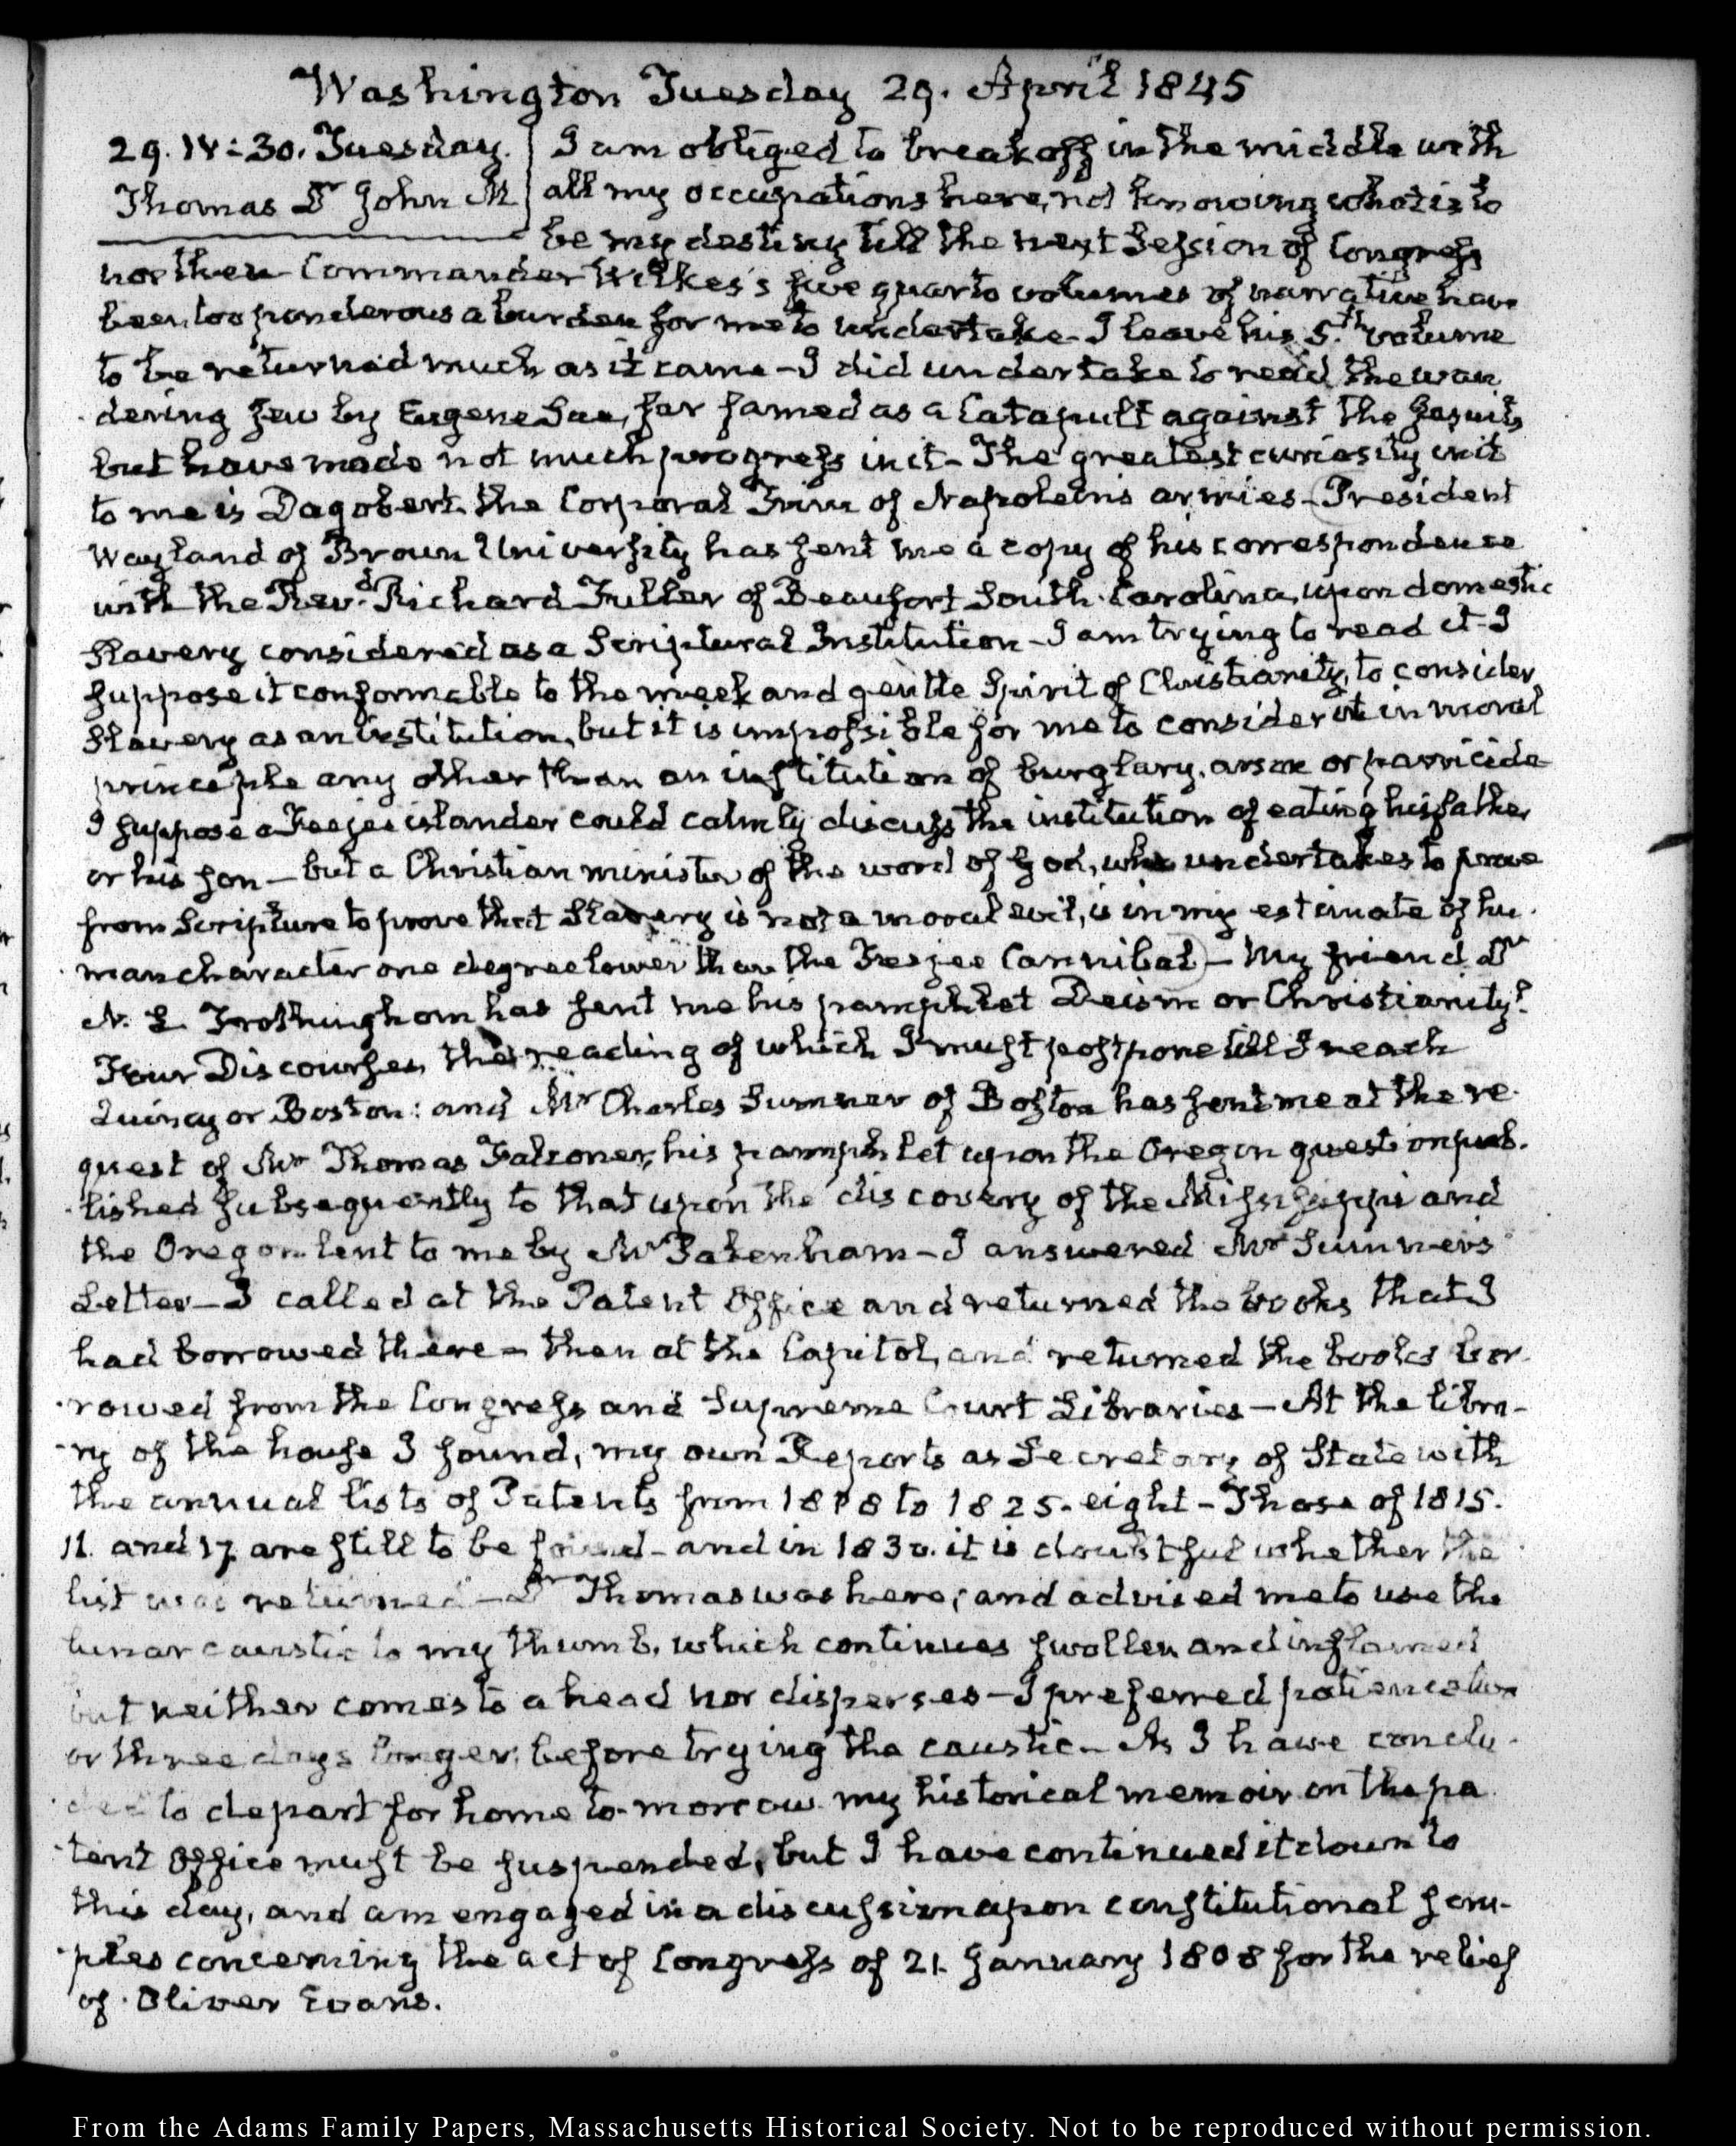 Washington Tuesday 29. April 1845
29. IV:30. Tuesday.
Thomas Dr John M
I am obliged to break off in the middle with
all my occupations here, nd knowing what is to
be my destiny till the next Session of Congress
nor then Commander Wilkes's five quarto volumes of narrative have
been too ponderous a burden for me to undertake - I leave his 5.th volume
to be returned much as it came - I did undertake to read the wan
dering Jew by Eugene Sue, far famed as a Catapult against the Jesuits
but have made not much progress in it - The greatest curiosity in it
to me is Dagobert. the Corporal Trim of Napoleon's armies - President
Wayland of Brown University has sent me a copy of his correspondence
with the Rev.d Richard Fuller of Beaufort South Carolina, upon domestic
Slavery considered as a Scriptural Institution - I am trying to read it - I
suppose it conformable to the meek and gentle Spirit of Christianity, to consider
Slavery as an institution, but it is impossible for me to consider it in moral
principle any other than an institution of burglary. arson or parricide
I suppose a Feejee islander could calmly discuss the institution of eating his father
or his son - but a Christian minister of the word of God, who undertakes to prove
from Scripture to prove that Slavery is not a moral evil, is in my estimate of hu-
man character one degree lower than the Feejee Cannibal - My friend Dr
N. L. Frothingham has sent me his pamphlet Deism or Christianity?
Four Discourses, the reading of which I must postpone till I reach
Quincy or Boston: and Mr Charles Sumner of Boston has sent me at the re-
quest of Mr Thomas Falconer, his pamphlet upon the Oregon question pub-
lished subsequently to that upon the discovery of the Mississippi and
the Oregon lent to me by Mr Pakenham - I answered Mr Sumner's
Letter - I called at the Patent Office and returned the books that I
had borrowed there - then at the Capitol, and returned the books bor-
-rowed from the Congress and Supreme Court Libraries - At the libra-
-ry of the house I found, my own Reports as Secretary of State with
the annual lists of Patents from 1818 to 1825. eight - Those of 1815.
11. and 17. are still to be found - and in 1830. it is doubtful whether the
list was returned - Dr Thomas was here; and advised me to use the
lunar caustic to my thumb, which continues swollen and inflamed
but neither comes to a head nor disperses - I preferred patience two
or three days longer, before trying the caustic - As I have conclu-
ded to depart for home to-morrow my historical memoir on the pa
-tent Office must be suspended, but I have continued it down to
this day, and am engaged in a discussion upon constitutional scru-
-ples concerning the act of Congress of 21. January 1808 for the relief
of Oliver Evans.
From the Adams Family Papers, Massachusetts Historical Society. Not to be reproduced without permission.